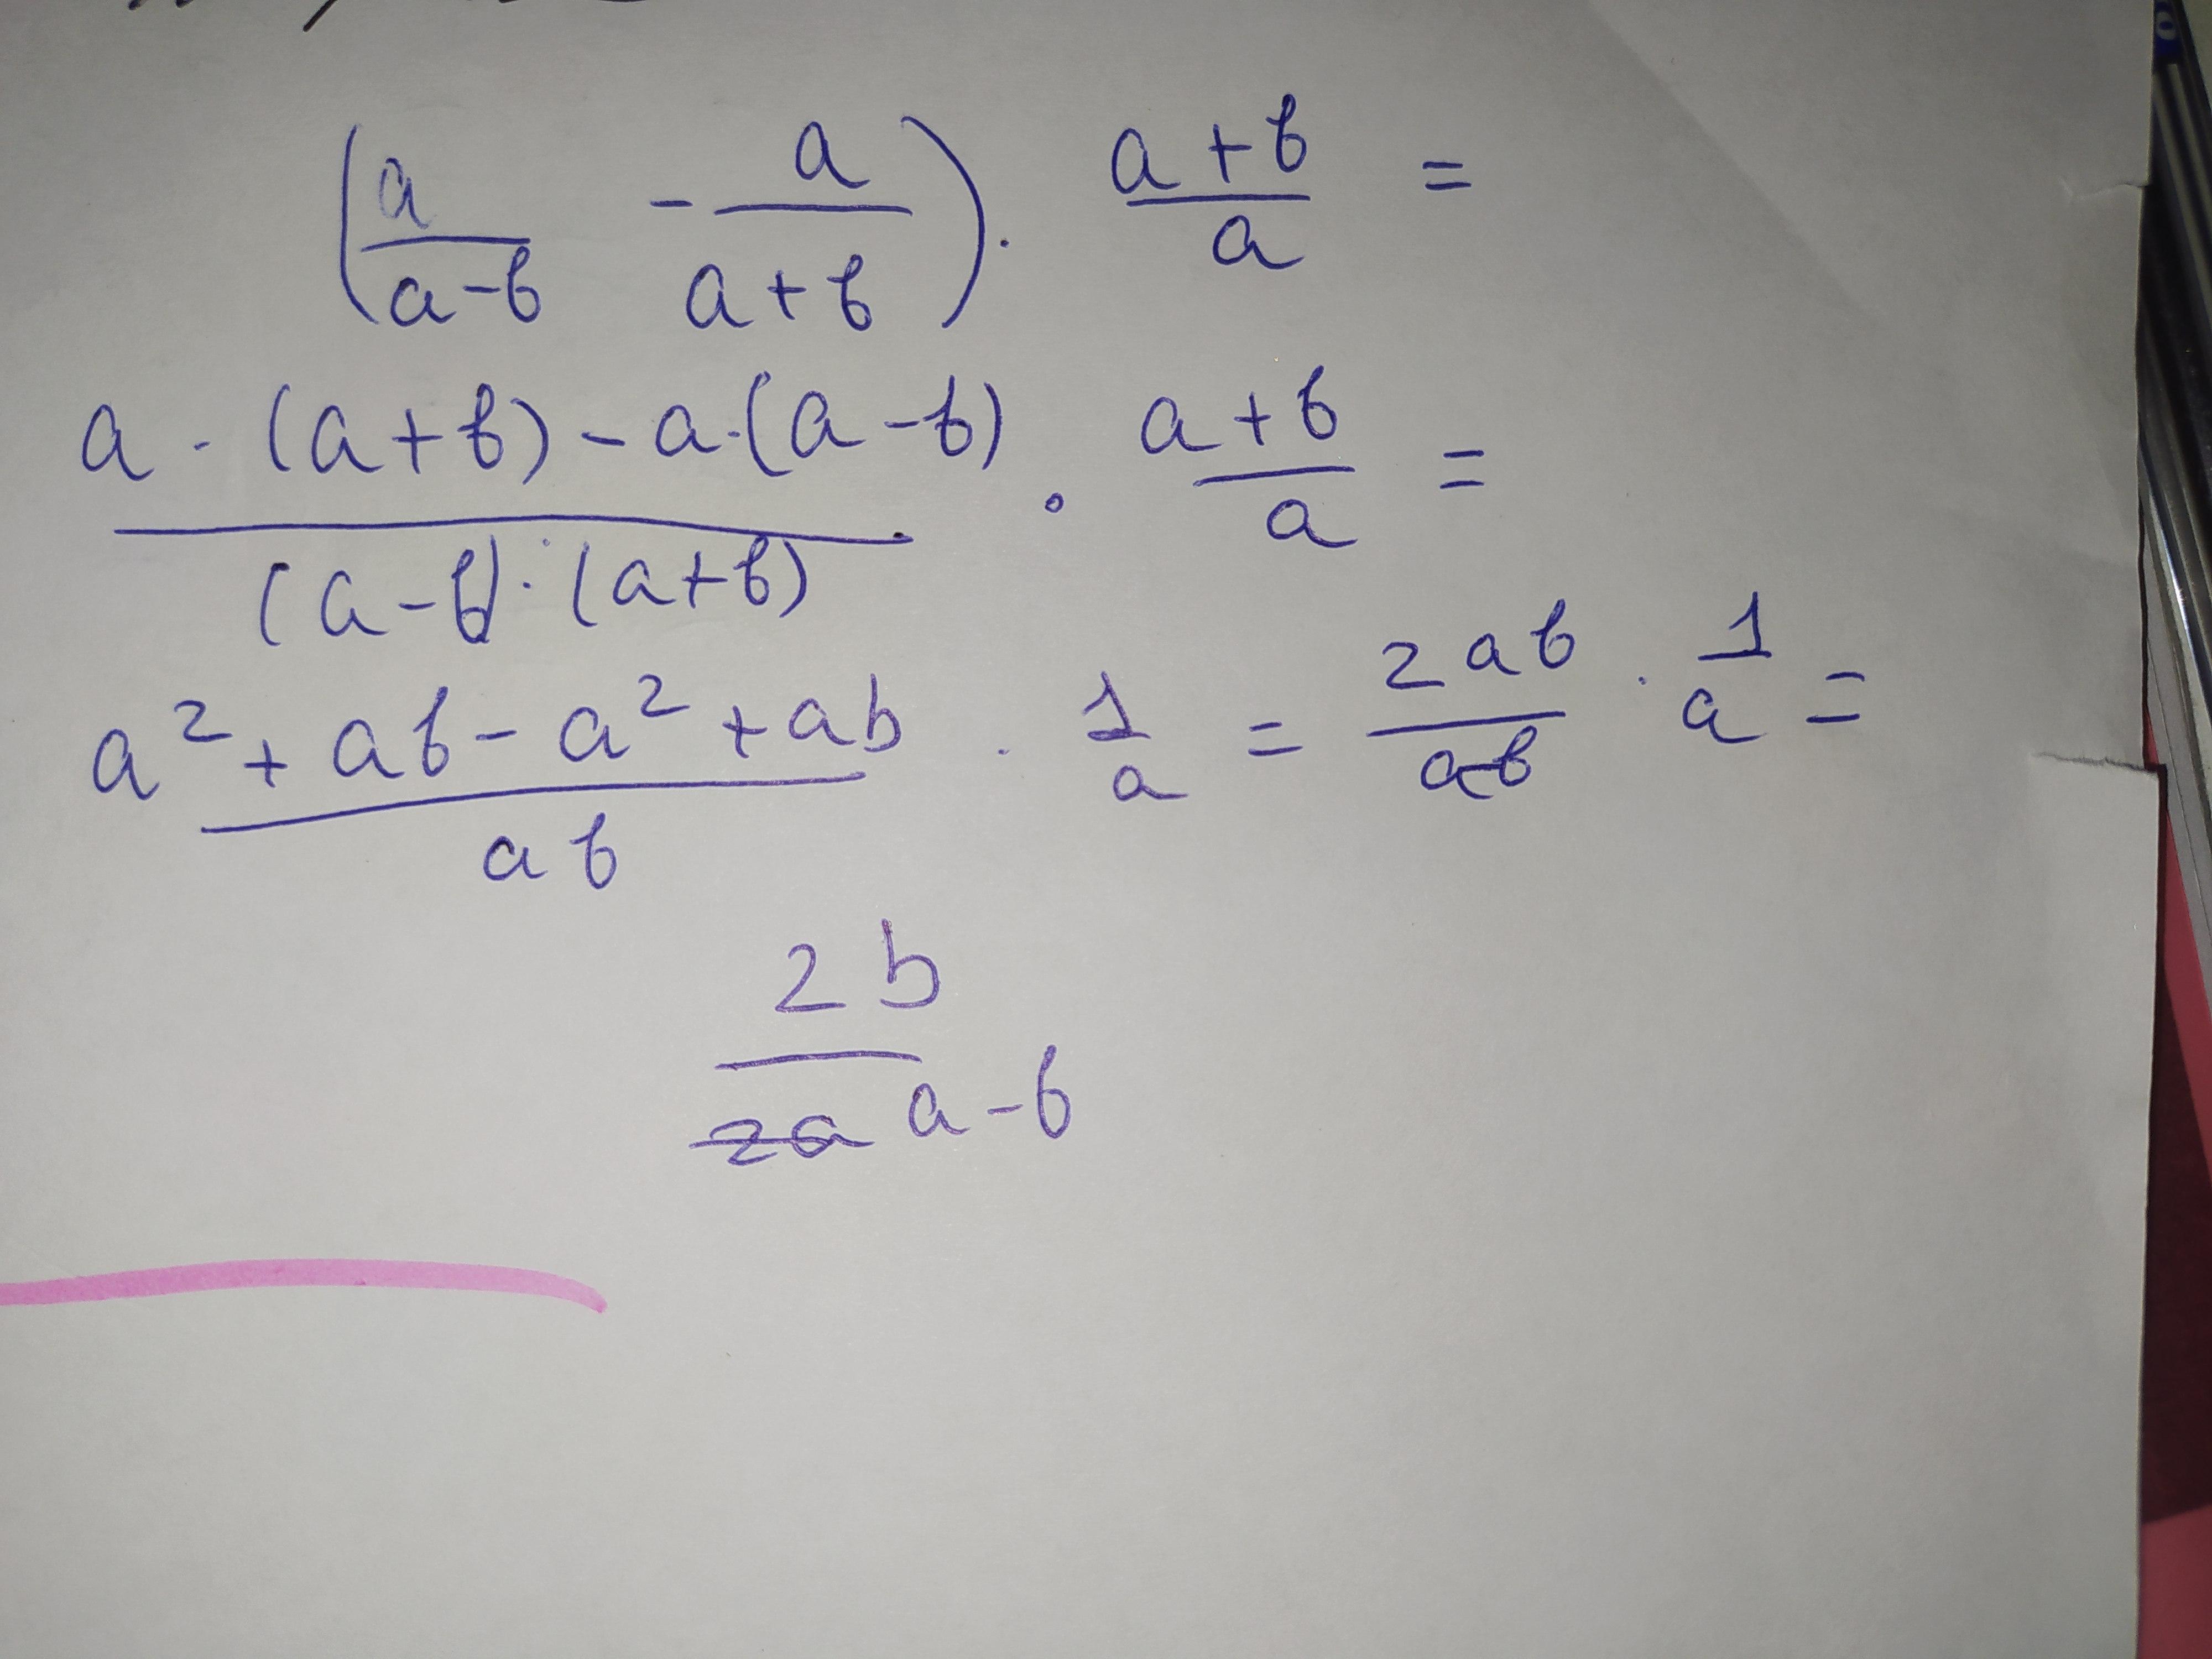 (a/(a-b) - a/(a+b)) · (a+b)/a =
(a · (a+b) - a·(a-b))/((a-b)·(a+b)) · (a+b)/a =
(a² + ab - a² + ab)/(ab) · 1/a = 2ab/(a-b) · 1/a =
2b/(a-b)